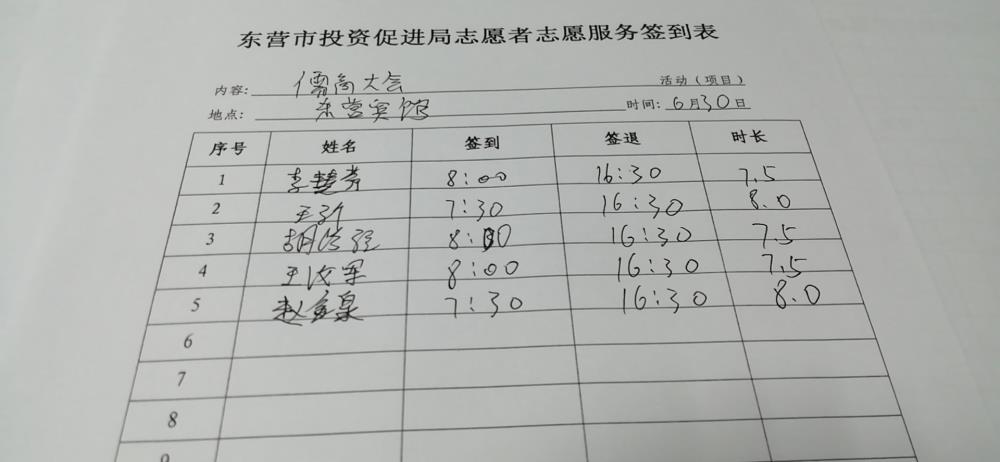 东营市投资促进局志愿者志愿服务签到表
内容: 儒商大会 活动（项目）
地点: 东营宾馆 时间: 6月30日
序号 姓名 签到 签退 时长
1 李慧芳 8:00 16:30 7.5
2 7:30 16:30 8.0
3 8:00 16:30 7.5
4 王汝军 8:00 16:30 7.5
5 赵金泉 7:30 16:30 8.0
6
7
8
9